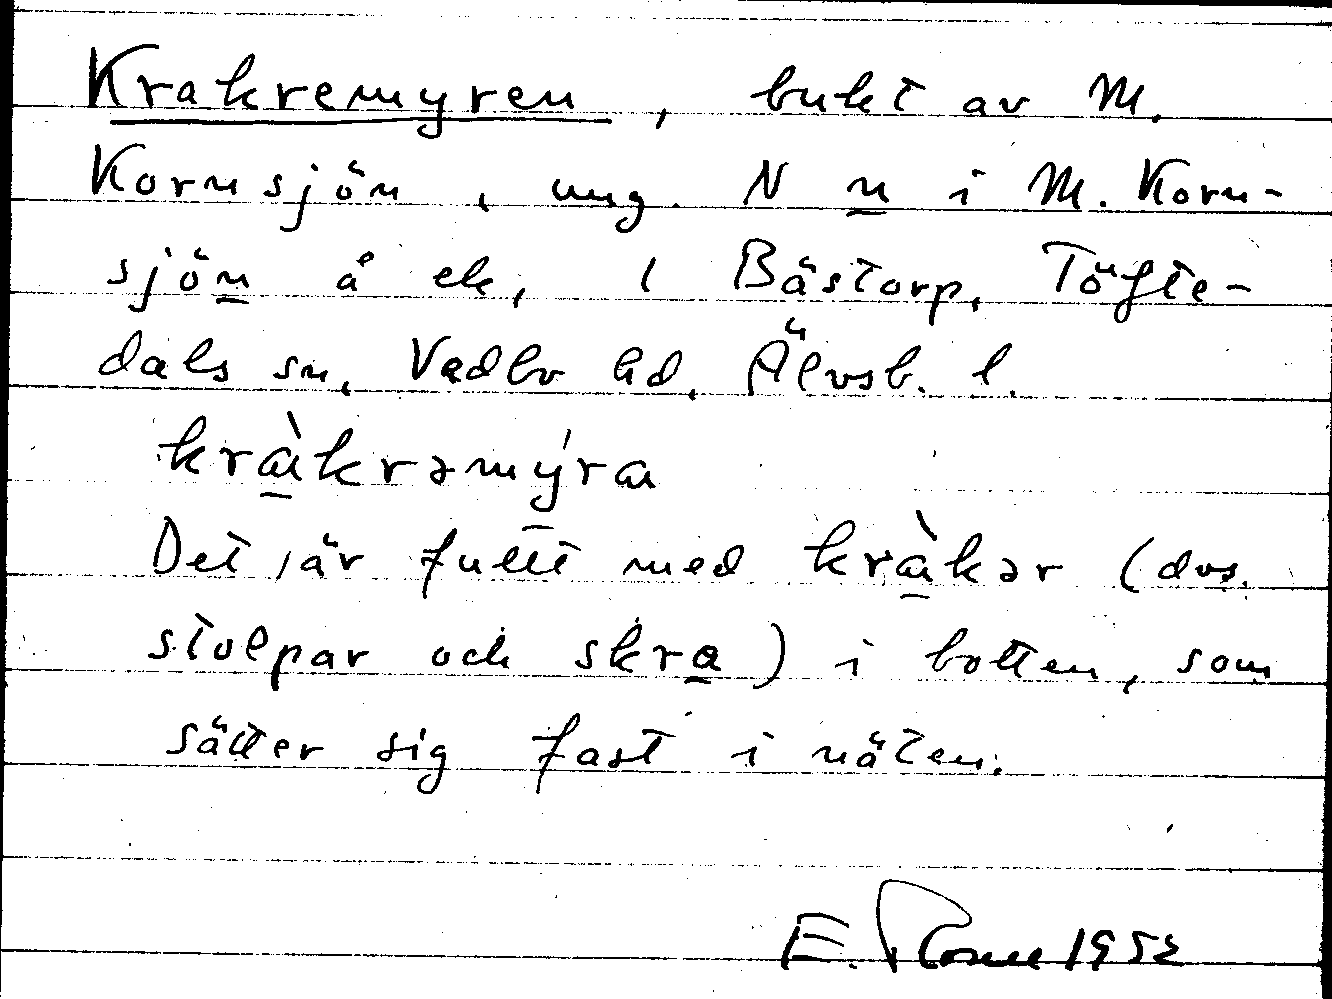 Krakremyren, bukt av M.
Kornsjön, ung. N n i M. Korn-
sjön å ek, i Bästorp, Töfte-
dals sn, Vedbo hd, Älvsb. l.
kràkrəmýra
Det är fullt med kràkər (dvs.
stolpar och skra) i botten, som
sätter sig fast i näten.
E. 1952